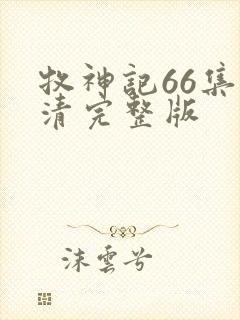 牧神記66集
清完整版
沫雲兮